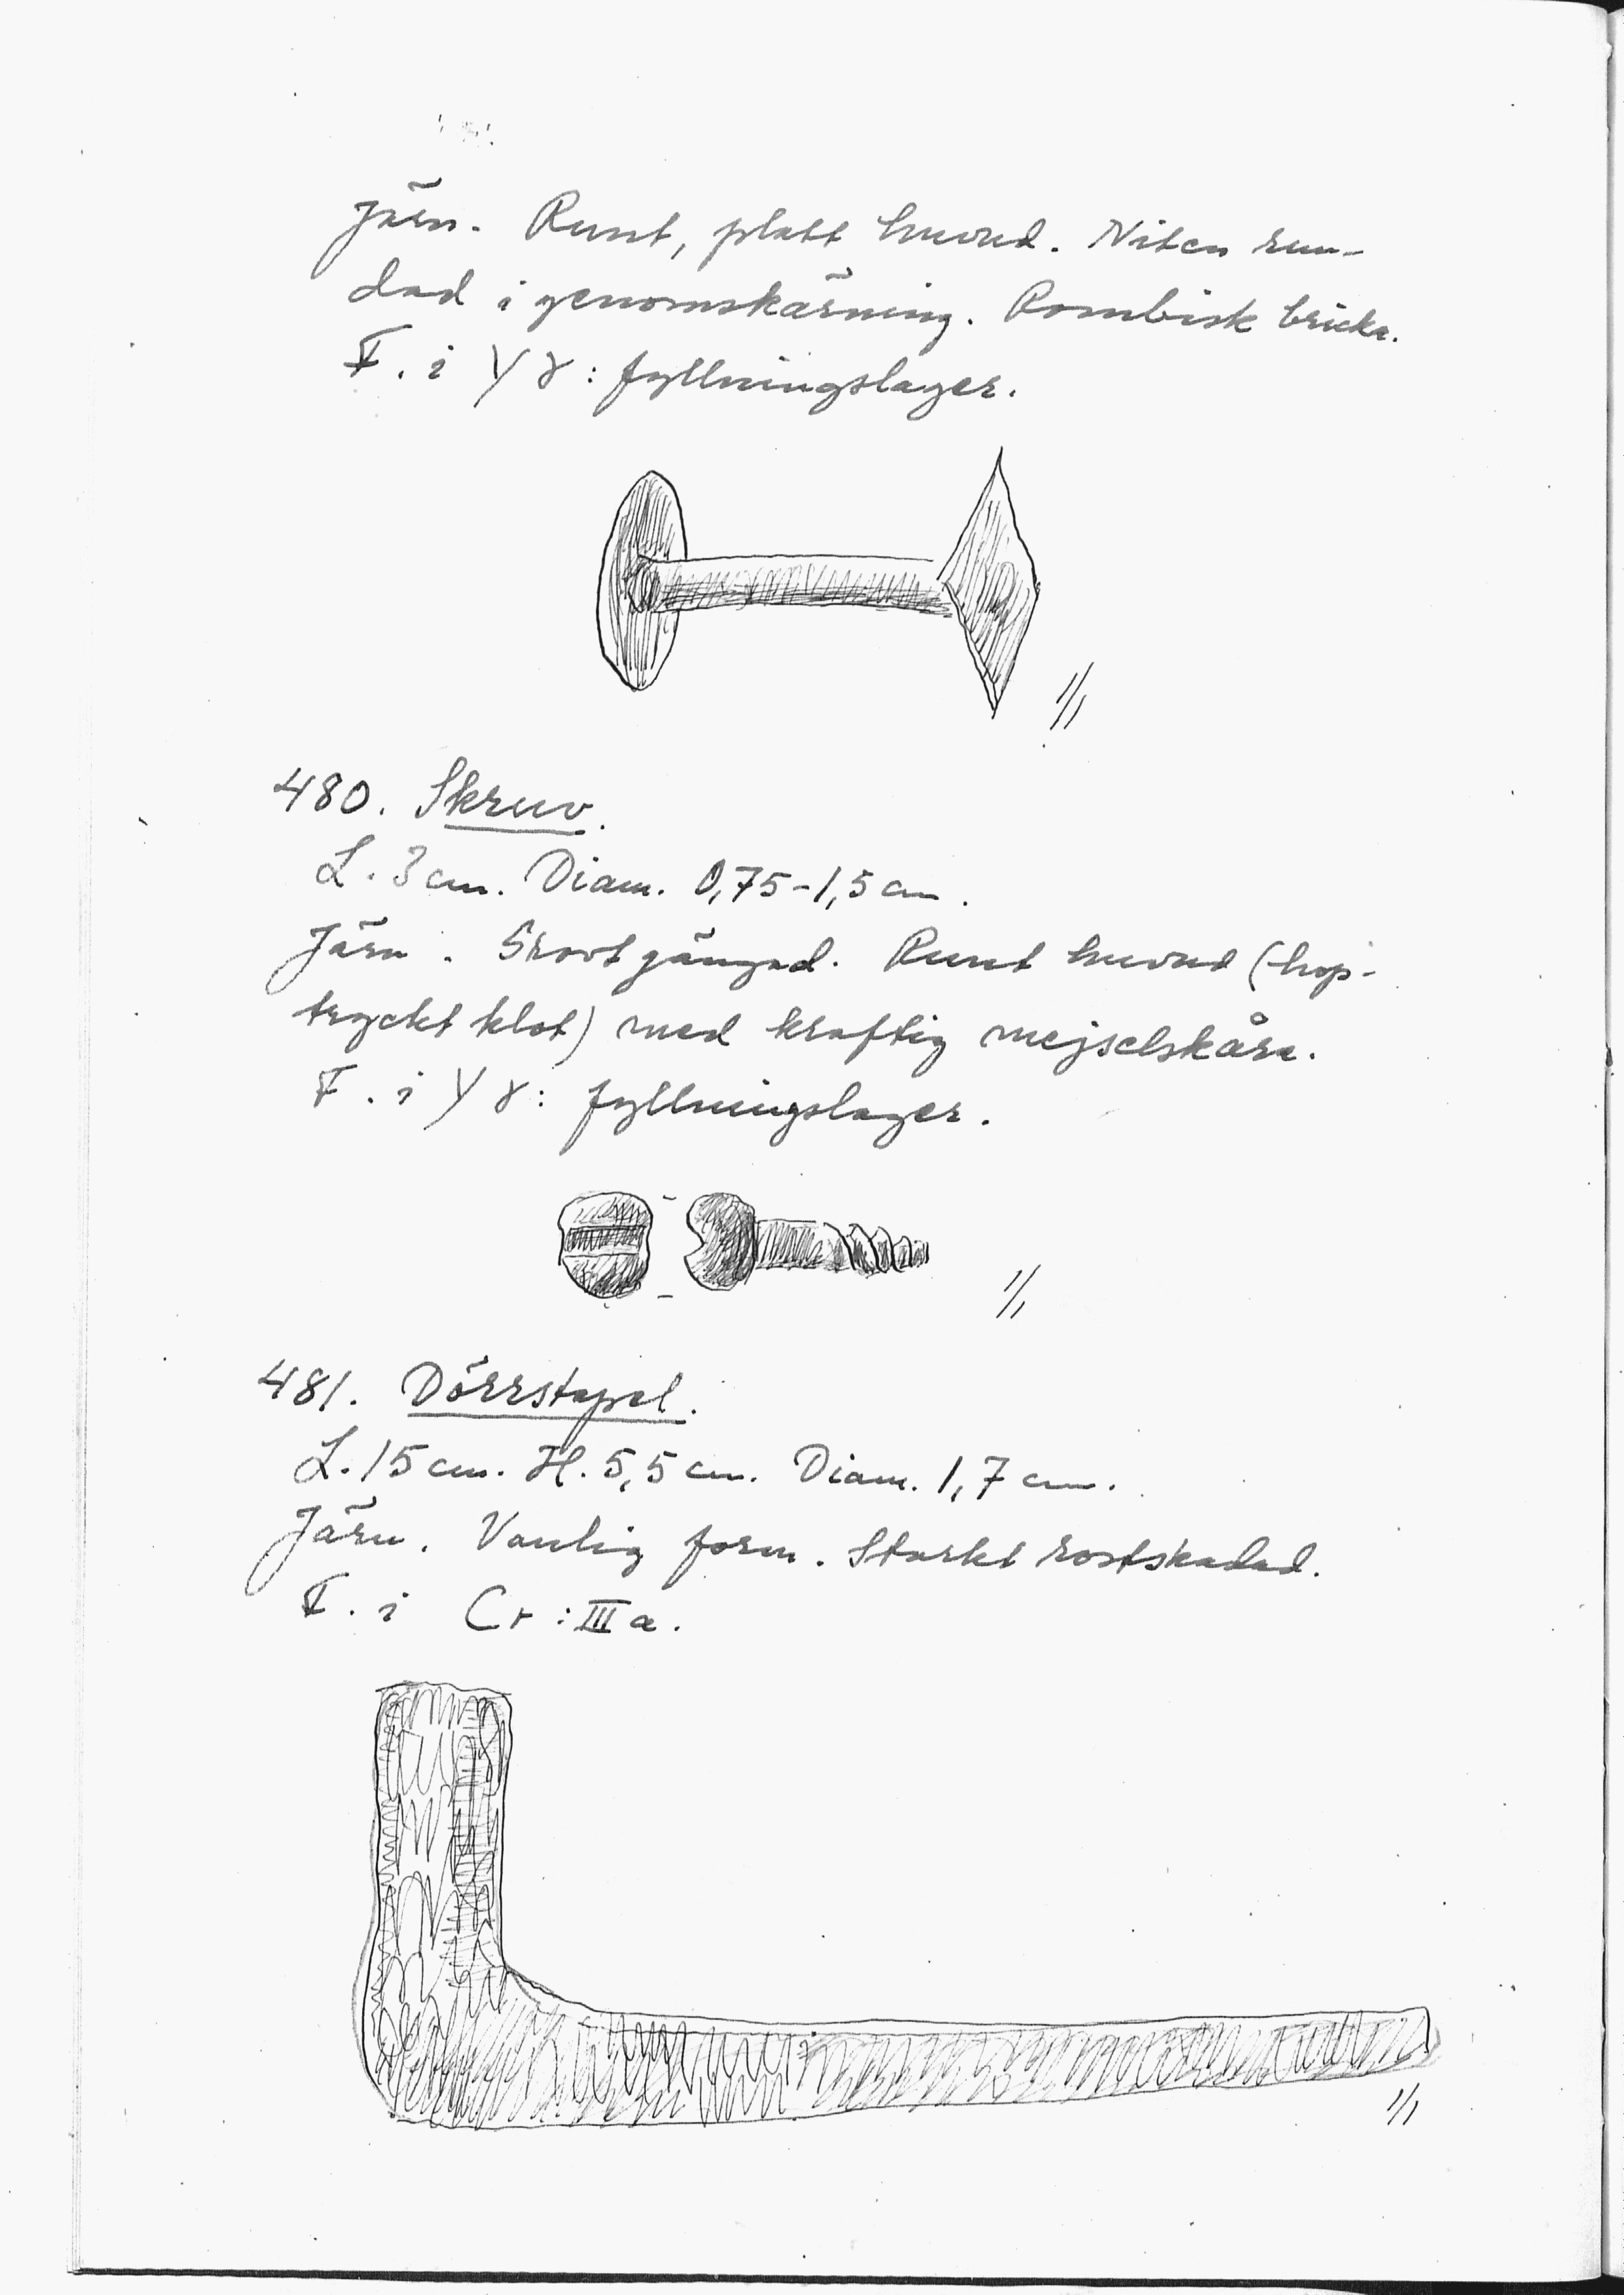 Järn. Runt, platt huvud. Niten run-
dad i genomskärning. Rombisk bricka.
F. i Yγ: fyllningslager.
1/1
480. Skruv.
L. 3 cm. Diam. 0,75-1,5 cm.
Järn. Grovt gängad. Runt huvud (hop-
tryckt klot) med kraftig mejselskåra.
F. i Yγ: fyllningslager.
1/1
481. Dörrstapel.
L. 15 cm. H. 5,5 cm. Diam. 1,7 cm.
Järn. Vanlig form. Starkt rostskadad.
F. i Cr: III a.
1/1